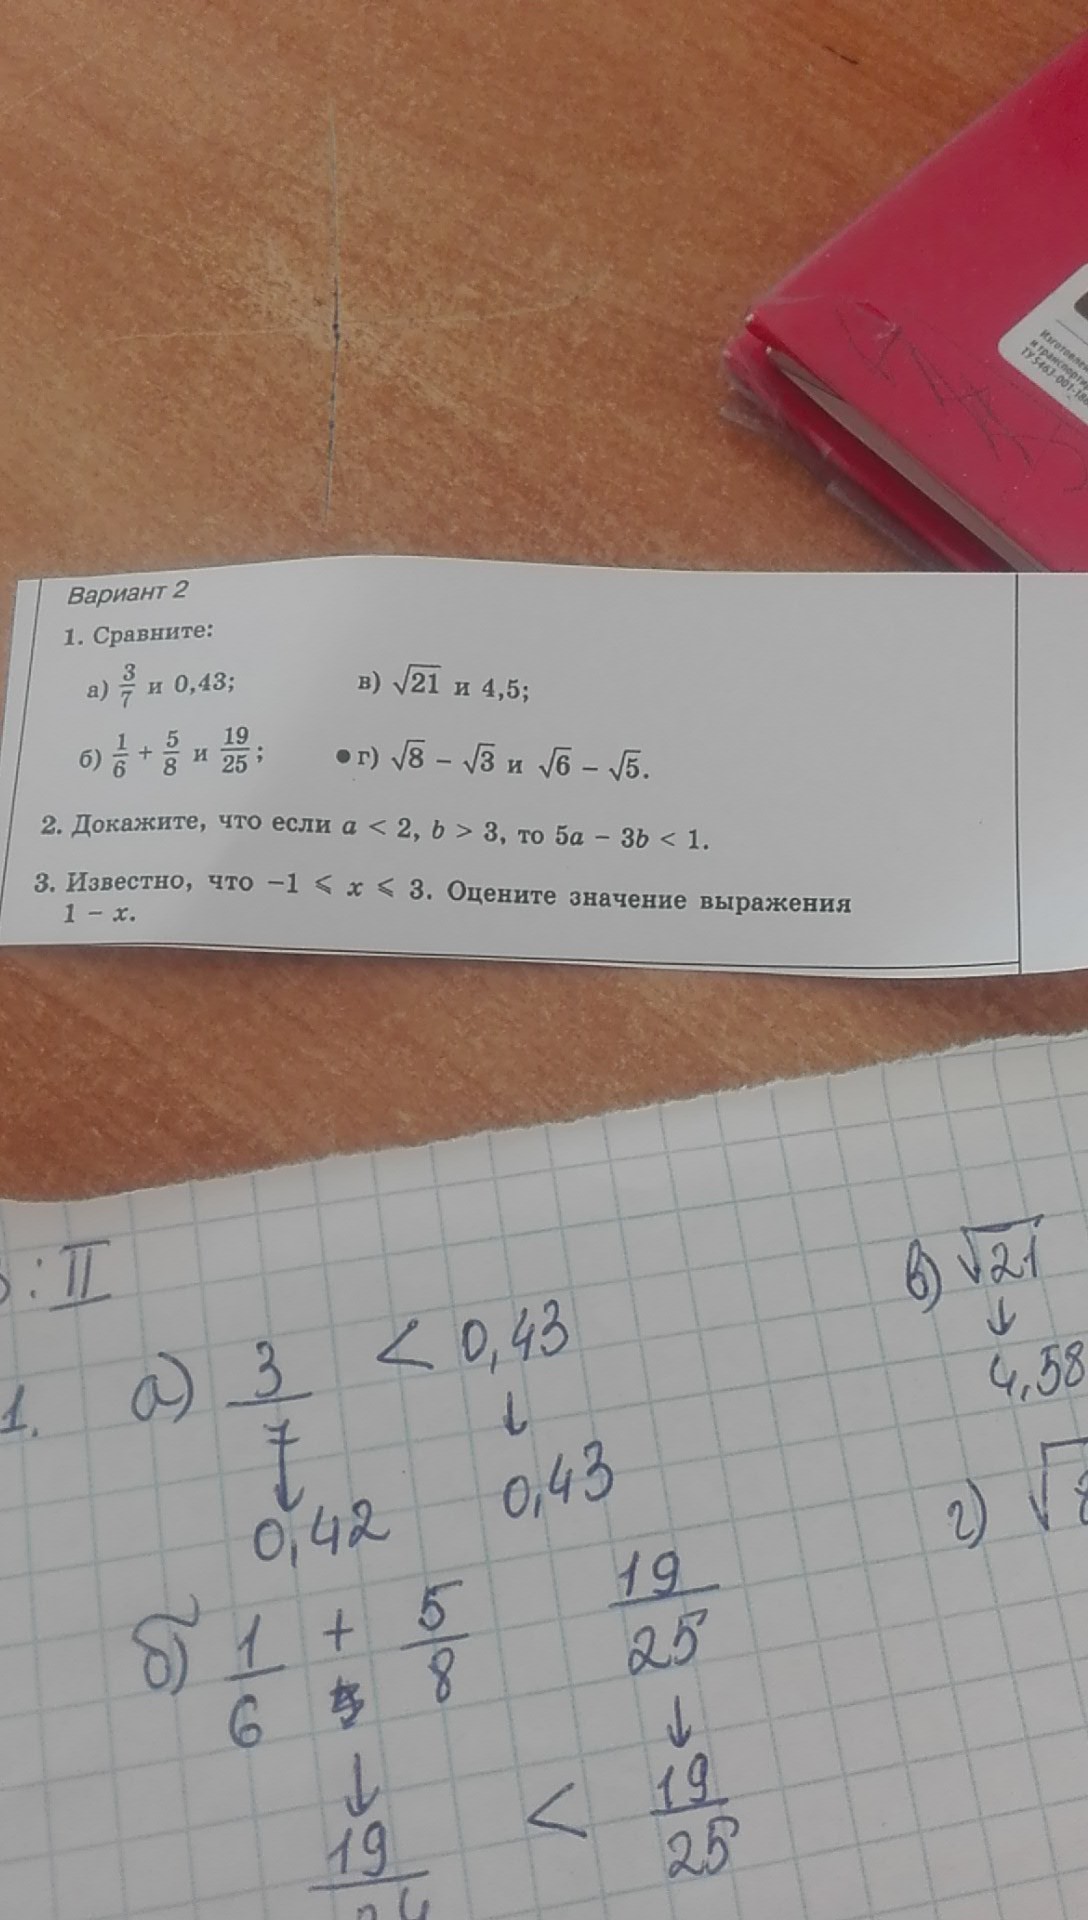 Изготовлен
и транспорти
ТУ 5463-001-186
Вариант 2
1. Сравните:
а) 3/7 и 0,43;
в) √21 и 4,5;
б) 1/6 + 5/8 и 19/25;
• г) √8 − √3 и √6 − √5.
2. Докажите, что если a < 2, b > 3, то 5a − 3b < 1.
3. Известно, что −1 ⩽ x ⩽ 3. Оцените значение выражения
1 − x.
: II
1. а) 3/7 < 0,43
↓ ↓
0,42 0,43
б) 1/6 + 5/8 19/25
↓ ↓
19/24 < 19/25
в) √21
↓
4,58
г) √8